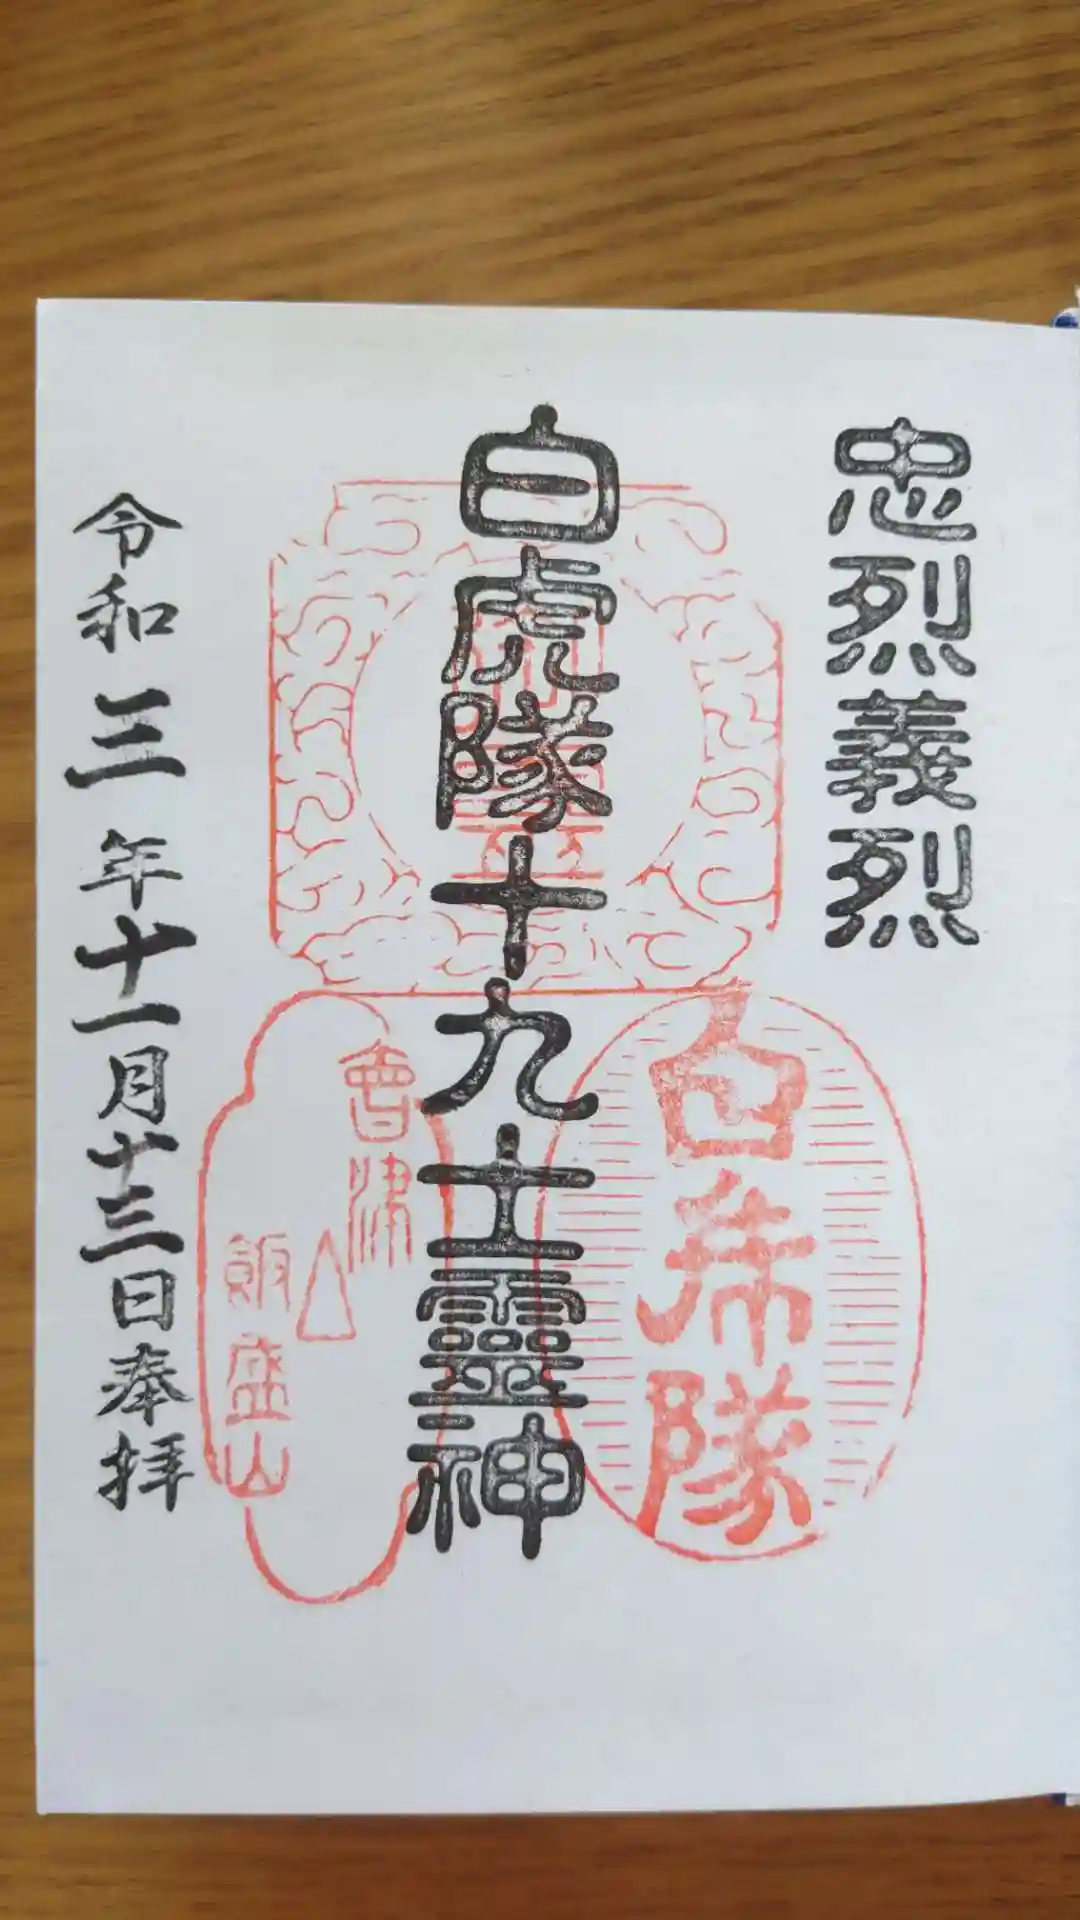 忠烈義烈
白虎隊十九士靈神
白虎隊
會津
飯盛山
令和三年十一月十三日奉拝